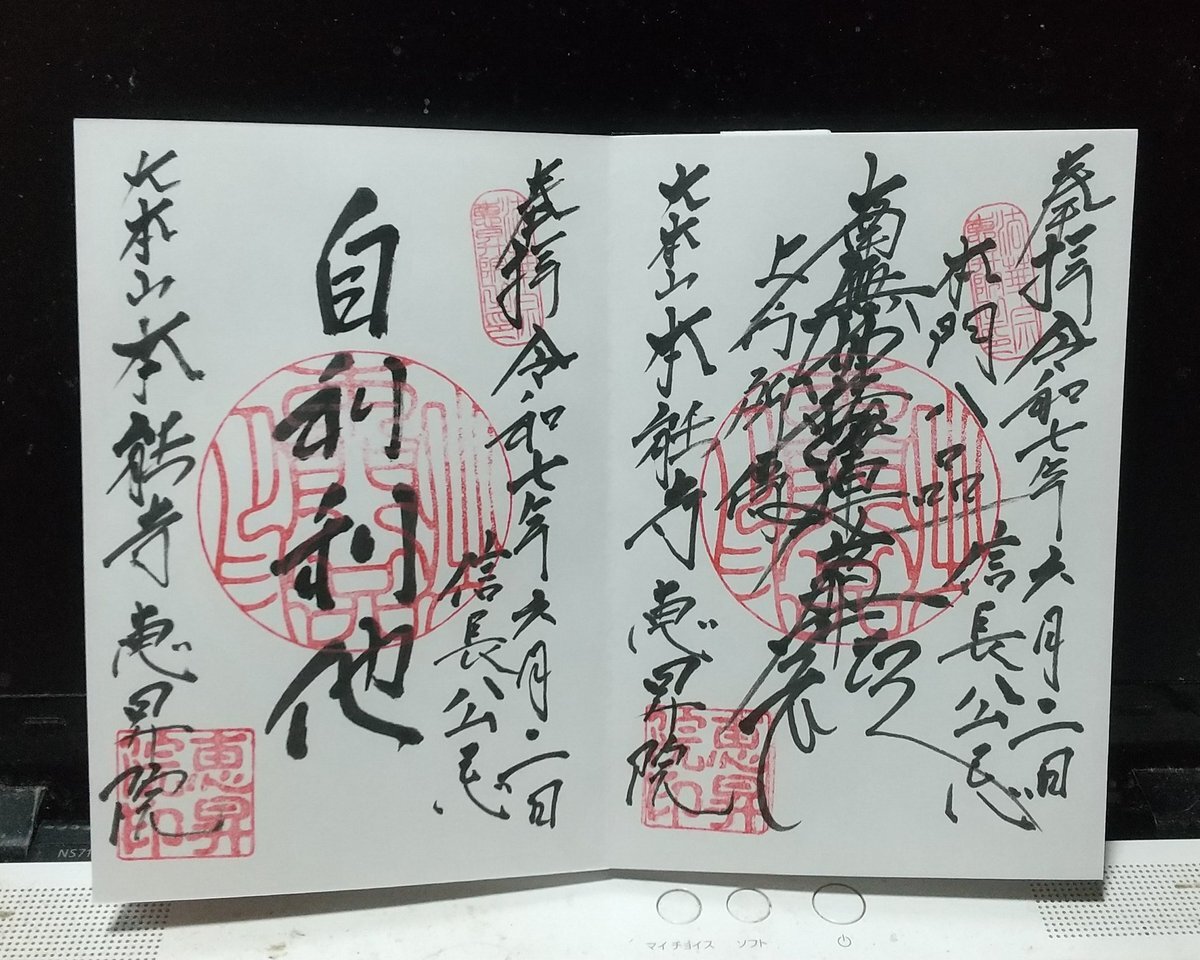 奉拝 令和七年六月二日
本門八品 信長公忌
南無妙法蓮華経
上行所傳
大本山本能寺 恵昇院
恵昇院印
奉拝 令和七年六月二日
信長公忌
自利利他
大本山本能寺 恵昇院
恵昇院印
マイチョイス ソフト